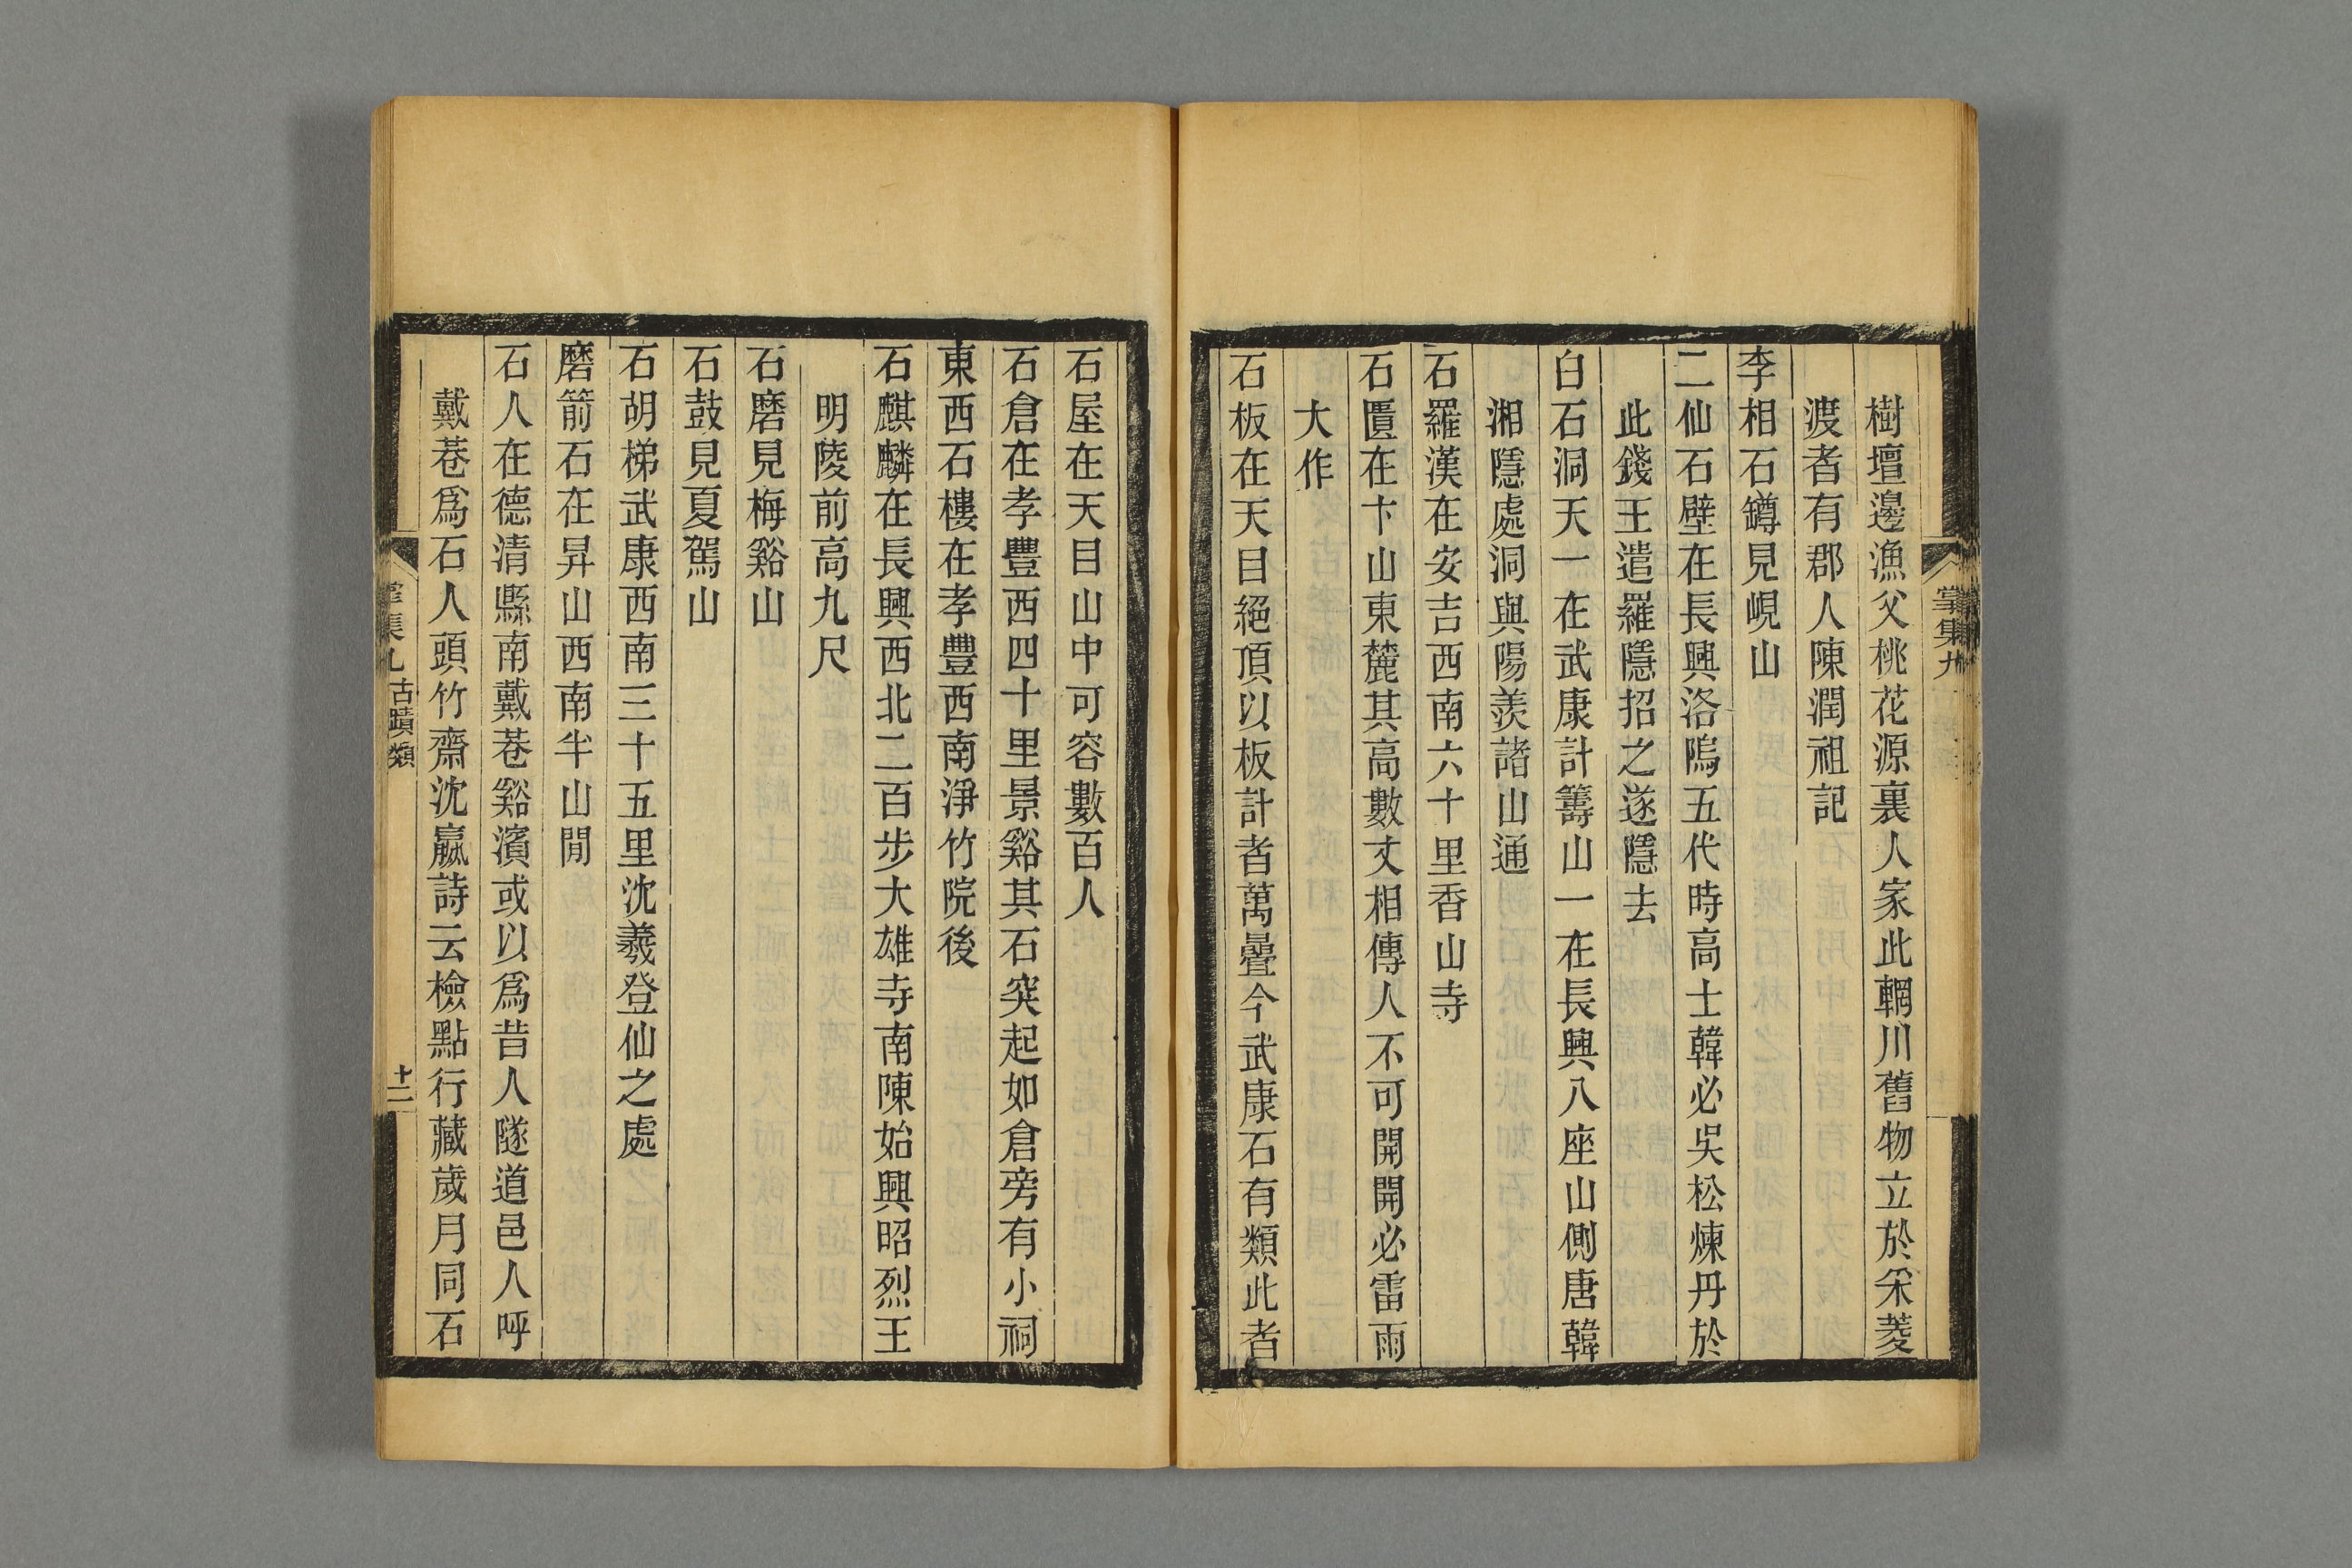 掌集九
樹壇邊漁父桃花源裏人家此輞川舊物立於采菱
渡者有郡人陳潤祖記
李相石鐏見峴山
二仙石壁在長興洛鴎五代時高士韓必吳松煉丹於
此錢王遣羅隱招之遂隱去
白石洞天一在武康計籌山一在長興八座山側唐韓
湘隱處洞與陽羨諸山通
石羅漢在安吉西南六十里香山寺
石匱在卞山東麓其高數丈相傳人不可開開必雷雨
大作
石板在天目絕頂以板計者萬疊今武康石有類此者
石屋在天目山中可容數百人
石倉在孝豐西四十里景谿其石突起如倉旁有小祠
東西石樓在孝豐西南淨竹院後
石麒麟在長興西北二百步大雄寺南陳始興昭烈王
明陵前高九尺
石磨見梅谿山
石鼓見夏駕山
石胡梯武康西南三十五里沈羲登仙之處
磨箭石在昇山西南半山閒
石人在德清縣南戴巷谿濱或以爲昔人隧道邑人呼
戴巷爲石人頭竹齋沈嬴詩云檢點行藏歲月同石
掌集九 古蹟類 十二